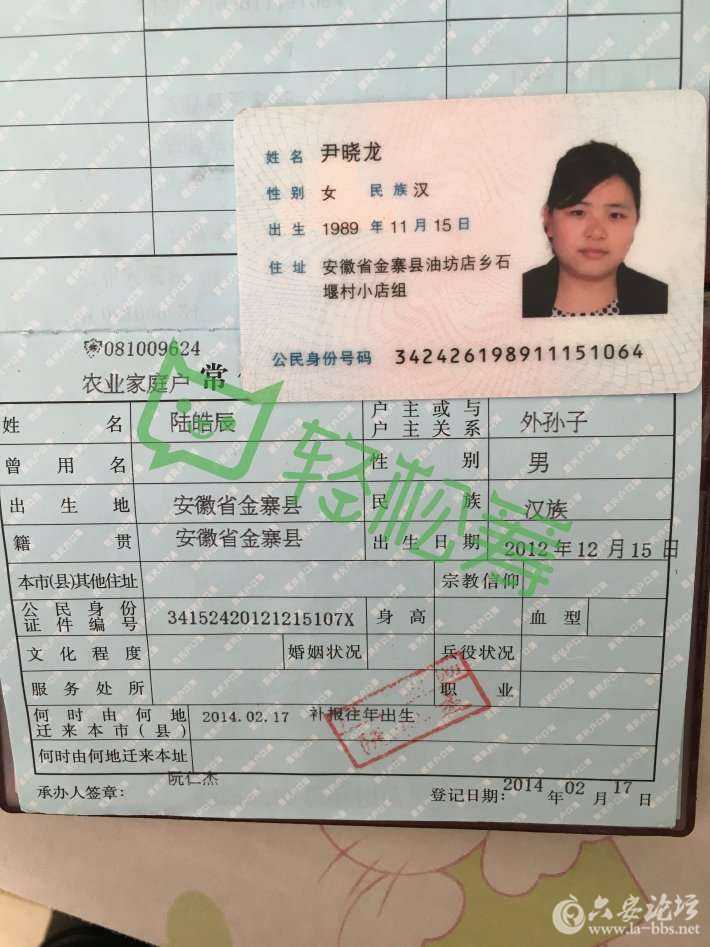 姓名 尹晓龙
性别 女 民族 汉
出生 1989 年 11 月 15 日
住址 安徽省金寨县油坊店乡石
堰村小店组
公民身份号码 342426198911151064
081009624
农业家庭户 常
姓名 陆皓辰 户主或与户主关系 外孙子
曾用名 性别 男
出生地 安徽省金寨县 民族 汉族
籍贯 安徽省金寨县 出生日期 2012年12月15日
本市(县)其他住址 宗教信仰
公民身份证件编号 34152420121215107X 身高 血型
文化程度 婚姻状况 兵役状况
服务处所 职业
何时由何地迁来本市(县) 2014.02.17 补报往年出生
何时由何地迁来本址
承办人签章: 阮仁杰 登记日期: 2014 年 02 月 17 日
轻松筹
六安论坛
www.la-bbs.net